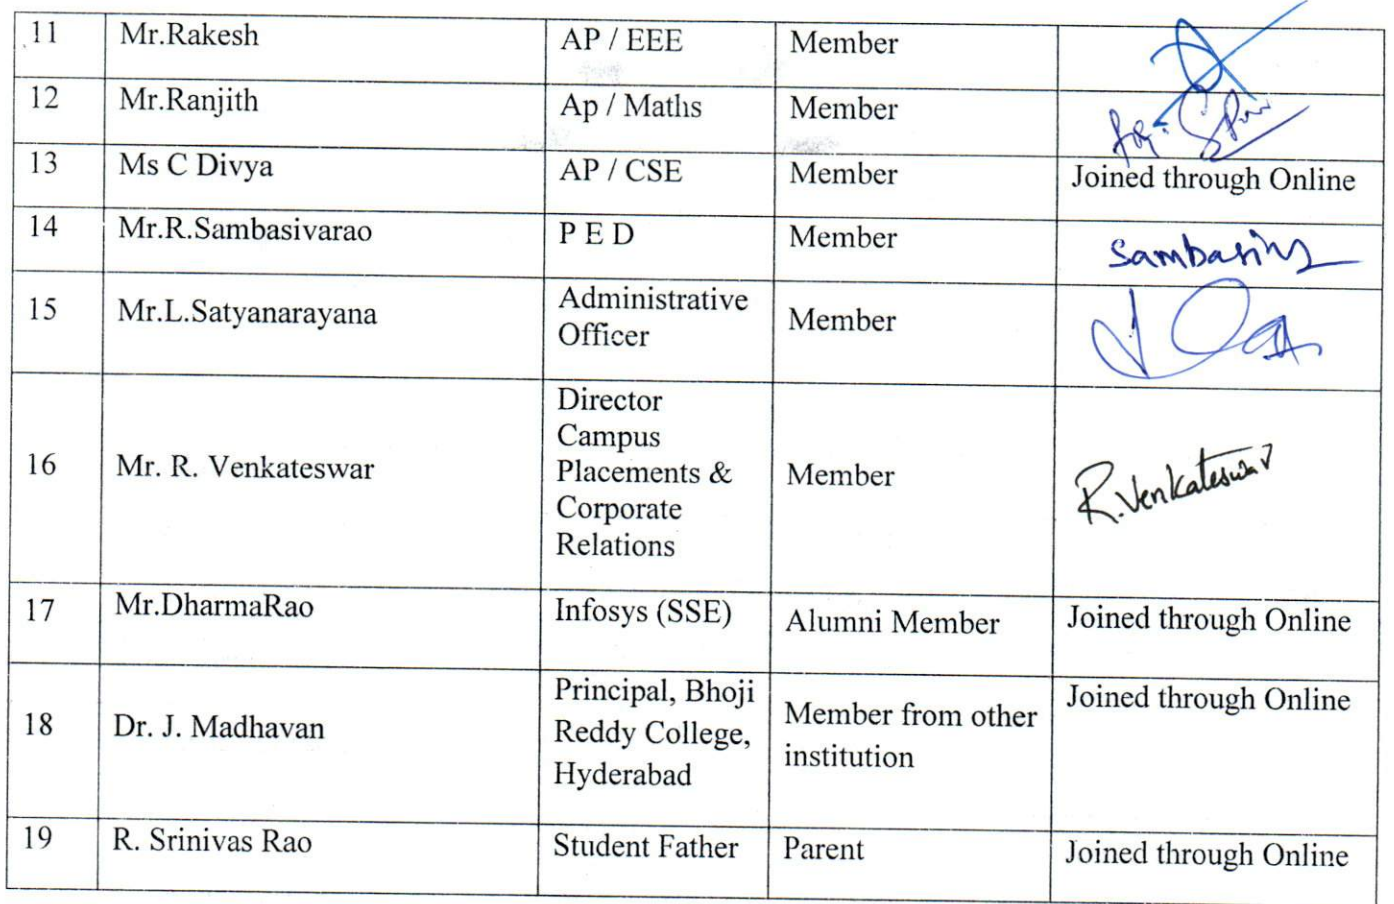 11 Mr.Rakesh AP / EEE Member
12 Mr.Ranjith Ap / Maths Member
13 Ms C Divya AP / CSE Member Joined through Online
14 Mr.R.Sambasivarao P E D Member Sambasiva
15 Mr.L.Satyanarayana Administrative
Officer Member
16 Mr. R. Venkateswar Director
Campus
Placements &
Corporate
Relations Member R.Venkateswar
17 Mr.DharmaRao Infosys (SSE) Alumni Member Joined through Online
18 Dr. J. Madhavan Principal, Bhoji
Reddy College,
Hyderabad Member from other
institution Joined through Online
19 R. Srinivas Rao Student Father Parent Joined through Online